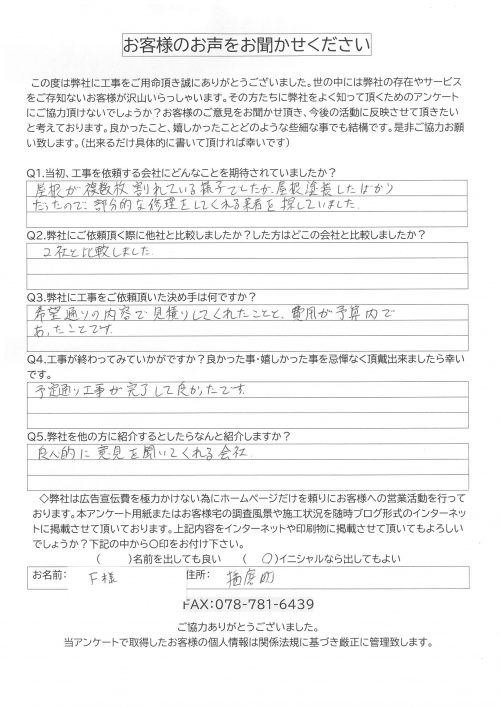 お客様のお声をお聞かせください
この度は弊社に工事をご用命頂き誠にありがとうございました。世の中には弊社の存在やサービス
をご存知ないお客様が沢山いらっしゃいます。その方たちに弊社をよく知って頂くためのアンケート
にご協力頂けないでしょうか？お客様のご意見をお聞かせ頂き、今後の活動に反映させて頂きたい
と考えております。良かったこと、嬉しかったことどのような些細な事でも結構です。是非ご協力お願
い致します。(出来るだけ具体的に書いて頂ければ幸いです)
Q1.当初、工事を依頼する会社にどんなことを期待されていましたか？
屋根が複数枚割れている様子でしたが、屋根塗装したばかり
だったので、部分的な修理をしてくれる業者を探していました。
Q2.弊社にご依頼頂く際に他社と比較しましたか？した方はどこの会社と比較しましたか？
2社と比較しました。
Q3.弊社に工事をご依頼頂いた決め手は何ですか？
希望通りの内容で見積りしてくれたことと、費用が予算内で
あったことです。
Q4.工事が終わってみていかがですか？良かった事・嬉しかった事を忌憚なく頂戴出来ましたら幸い
です。
予定通り工事が完了して良かったです。
Q5.弊社を他の方に紹介するとしたらなんと紹介しますか？
良心的に意見を聞いてくれる会社。
◇弊社は広告宣伝費を極力かけない為にホームページだけを頼りにお客様への営業活動を行って
おります。本アンケート用紙またはお客様宅の調査風景や施工状況を随時ブログ形式のインターネッ
トに掲載させて頂いております。上記内容をインターネットや印刷物に掲載させて頂いてもよろしい
でしょうか？下記の中から〇印をお付け下さい。
(　　)名前を出しても良い　(　〇)イニシャルなら出してもよい
お名前: F様 住所: 播磨町
FAX:078-781-6439
ご協力ありがとうございました。
当アンケートで取得したお客様の個人情報は関係法規に基づき厳正に管理致します。